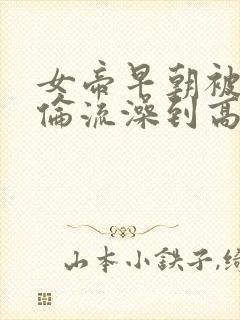 女帝早朝被
伦流澡到高
山本小鉄子,绮